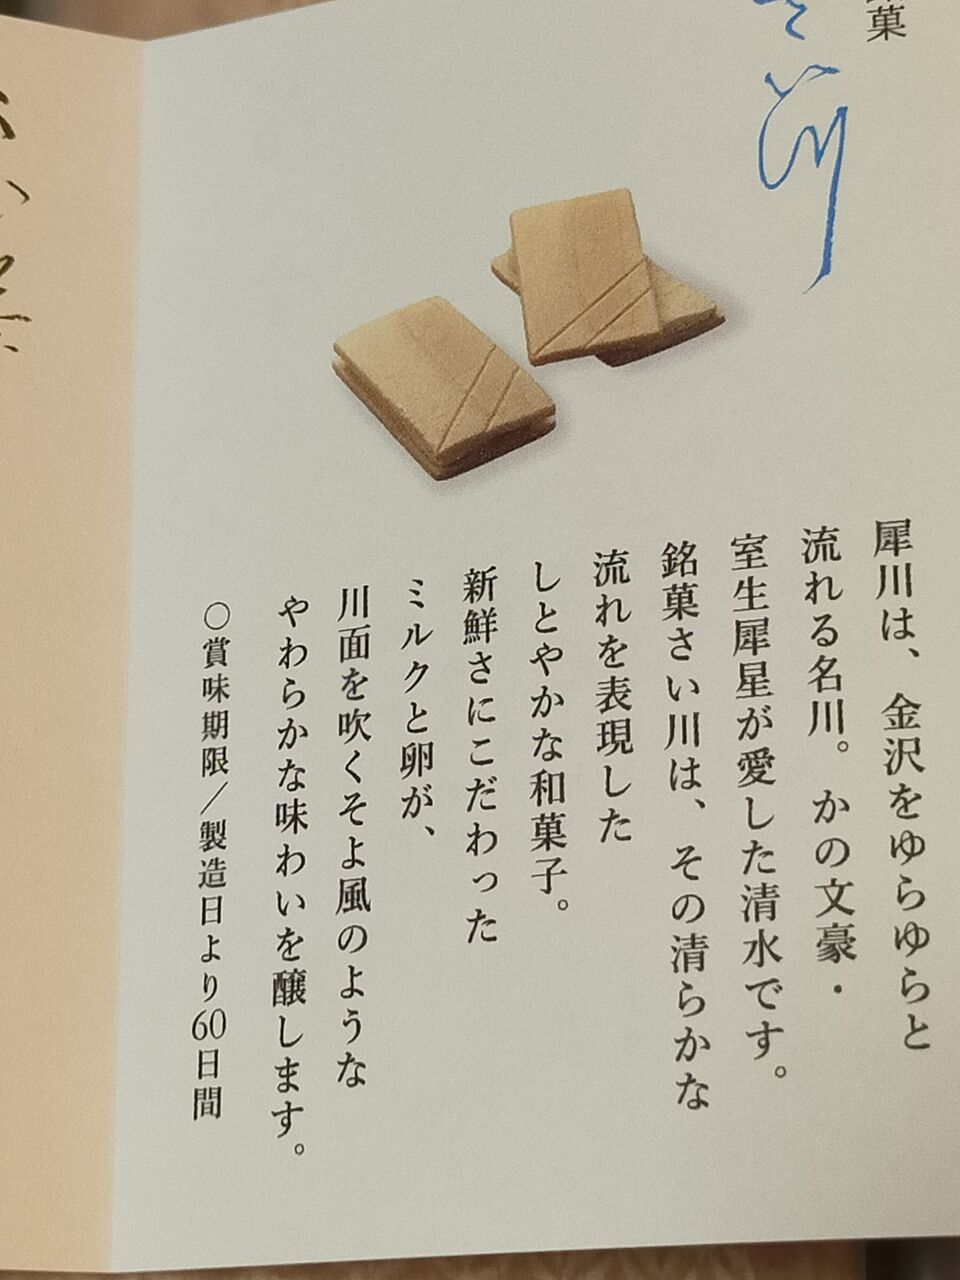 銘菓
さい川
犀川は、金沢をゆらゆらと
流れる名川。かの文豪・
室生犀星が愛した清水です。
銘菓さい川は、その清らかな
流れを表現した
しとやかな和菓子。
新鮮さにこだわった
ミルクと卵が、
川面を吹くそよ風のような
やわらかな味わいを醸します。
○賞味期限／製造日より60日間